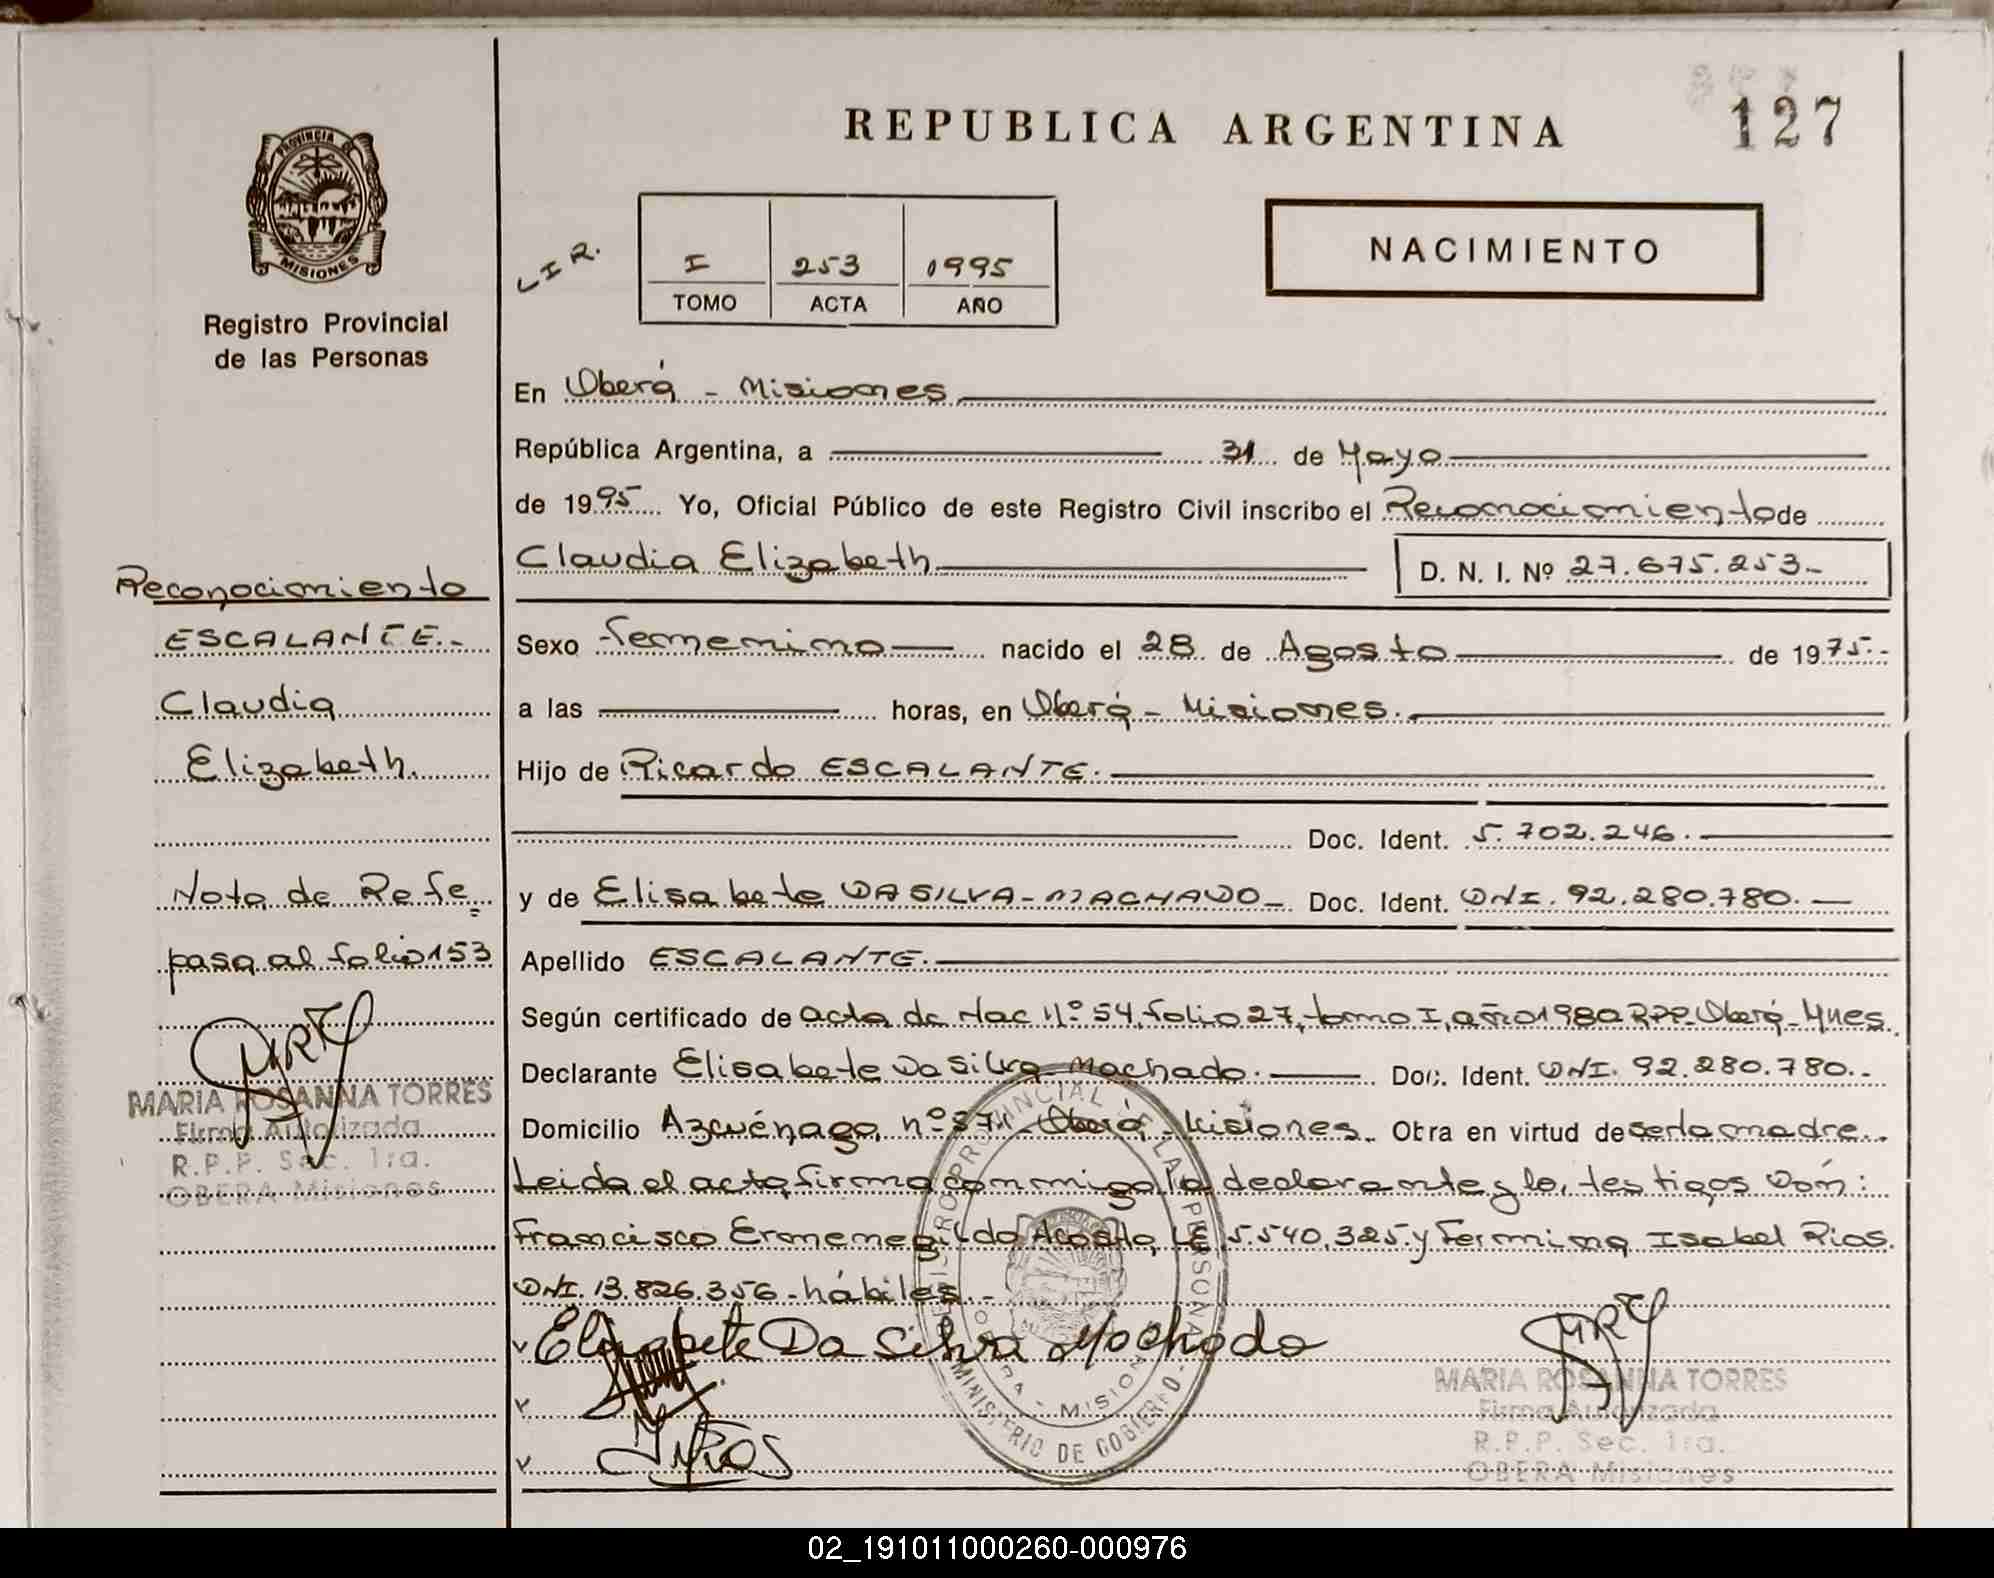 REPUBLICA ARGENTINA
127
PROVINCIA DE
MISIONES
Registro Provincial
de las Personas
L I R.
I 253 1995
TOMO ACTA AÑO
NACIMIENTO
En Oberá - Misiones
República Argentina, a 31 de Mayo
de 1995 Yo, Oficial Público de este Registro Civil inscribo el Reconocimiento de
Claudia Elizabeth D. N. I. Nº 27.675.253.-
Sexo femenino nacido el 28 de Agosto de 1975.-
a las horas, en Oberá - Misiones.
Hijo de Ricardo ESCALANTE.
Doc. Ident. 5.702.246.
y de Elisabete DA SILVA - MACHADO - Doc. Ident. DNI. 92.280.780.
Apellido ESCALANTE.
Según certificado de acta de Nac Nº 54, folio 27, tomo I, año 1980 RPP. Oberá - Mnes.
Declarante Elisabete Da Silva Machado. Doc. Ident. DNI. 92.280.780.-
Domicilio Azcuénaga nº Oberá - Misiones. Obra en virtud de ser la madre.
Leida el acta, firma conmigo la declarante y los testigos Don:
Francisco Ermenegildo Acosta, LE 5.540.325. y Fermina Isabel Rios.
DNI. 13.826.356 - hábiles.-
Elisabete Da Silva Machado
RIOS
MARIA ROSANNA TORRES
Firma Autorizada
R.P.P. Sec. 1ra.
OBERA Misiones
REGISTRO PROVINCIAL DE LAS PERSONAS
MINISTERIO DE GOBIERNO
OBERA - MISIONES
Reconocimiento
ESCALANTE.-
Claudia
Elizabeth.
Nota de Refe
pasa al folio 153
MARIA ROSANNA TORRES
Firma Autorizada
R.P.P. Sec. 1ra.
OBERA Misiones
02_191011000260-000976